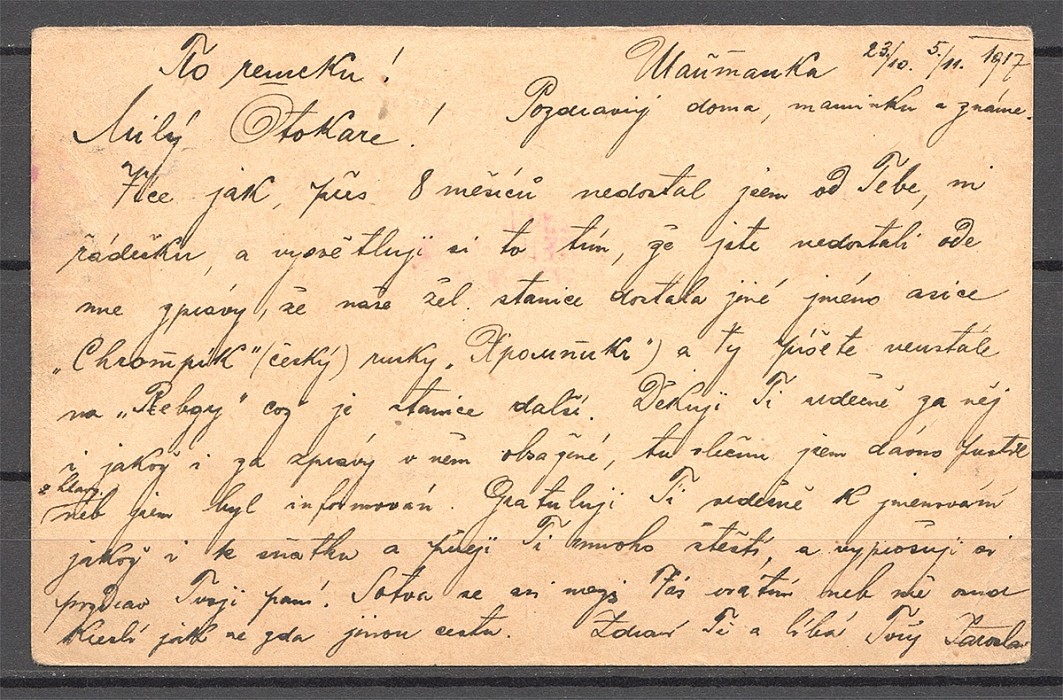 Po remeku! Шайтанка 23/10. 5/11. 1917
Pozdravuj doma, maminku a známe.
Milý Otokare!
Více jak, přes 8 měsíců nedostal jsem od Tebe, ni
řádečku, a vysvětluji si to tím, že jste nedostali ode
mne zprávy, že naše žel. stanice dostala jiné jméno sice
„Chrompik" (český) rusky „Хромпикъ") a ty píšete neustále
na „Rebgy" což je stanice další. Děkuji Ti srdečně za něj
i jakož i za zprávy v něm obsažené, tu slečnu jsem dávno pustil
z hlavy
neb jsem byl informován. Gratuluji Ti srdečně k jmenování
jakož i k sňatku a přeji Ti mnoho štěstí, a vyprošuji si
pozdrav Tvojí paní. Sotva se asi k Vás vrátím neb mě osud
kreslí jak se zdá jinou cestu. Zdraví Tě a líbá Tvůj Jaroslav